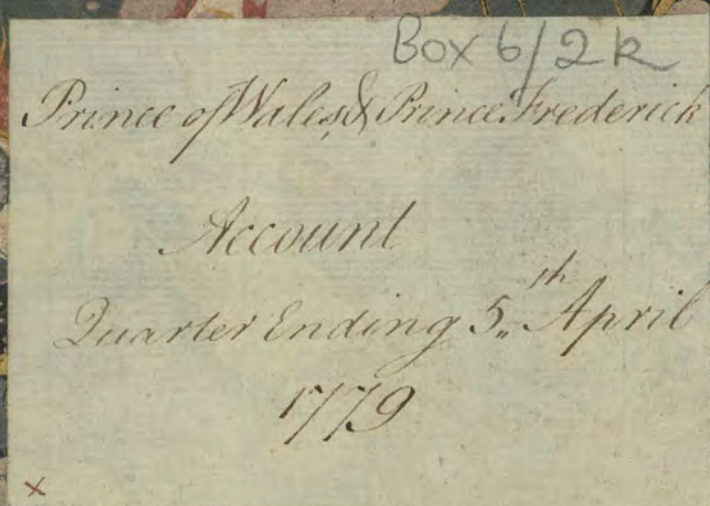 Box 6/2k
Prince of Wales, & Prince Frederick
Account
Quarter Ending 5th April
1779
x